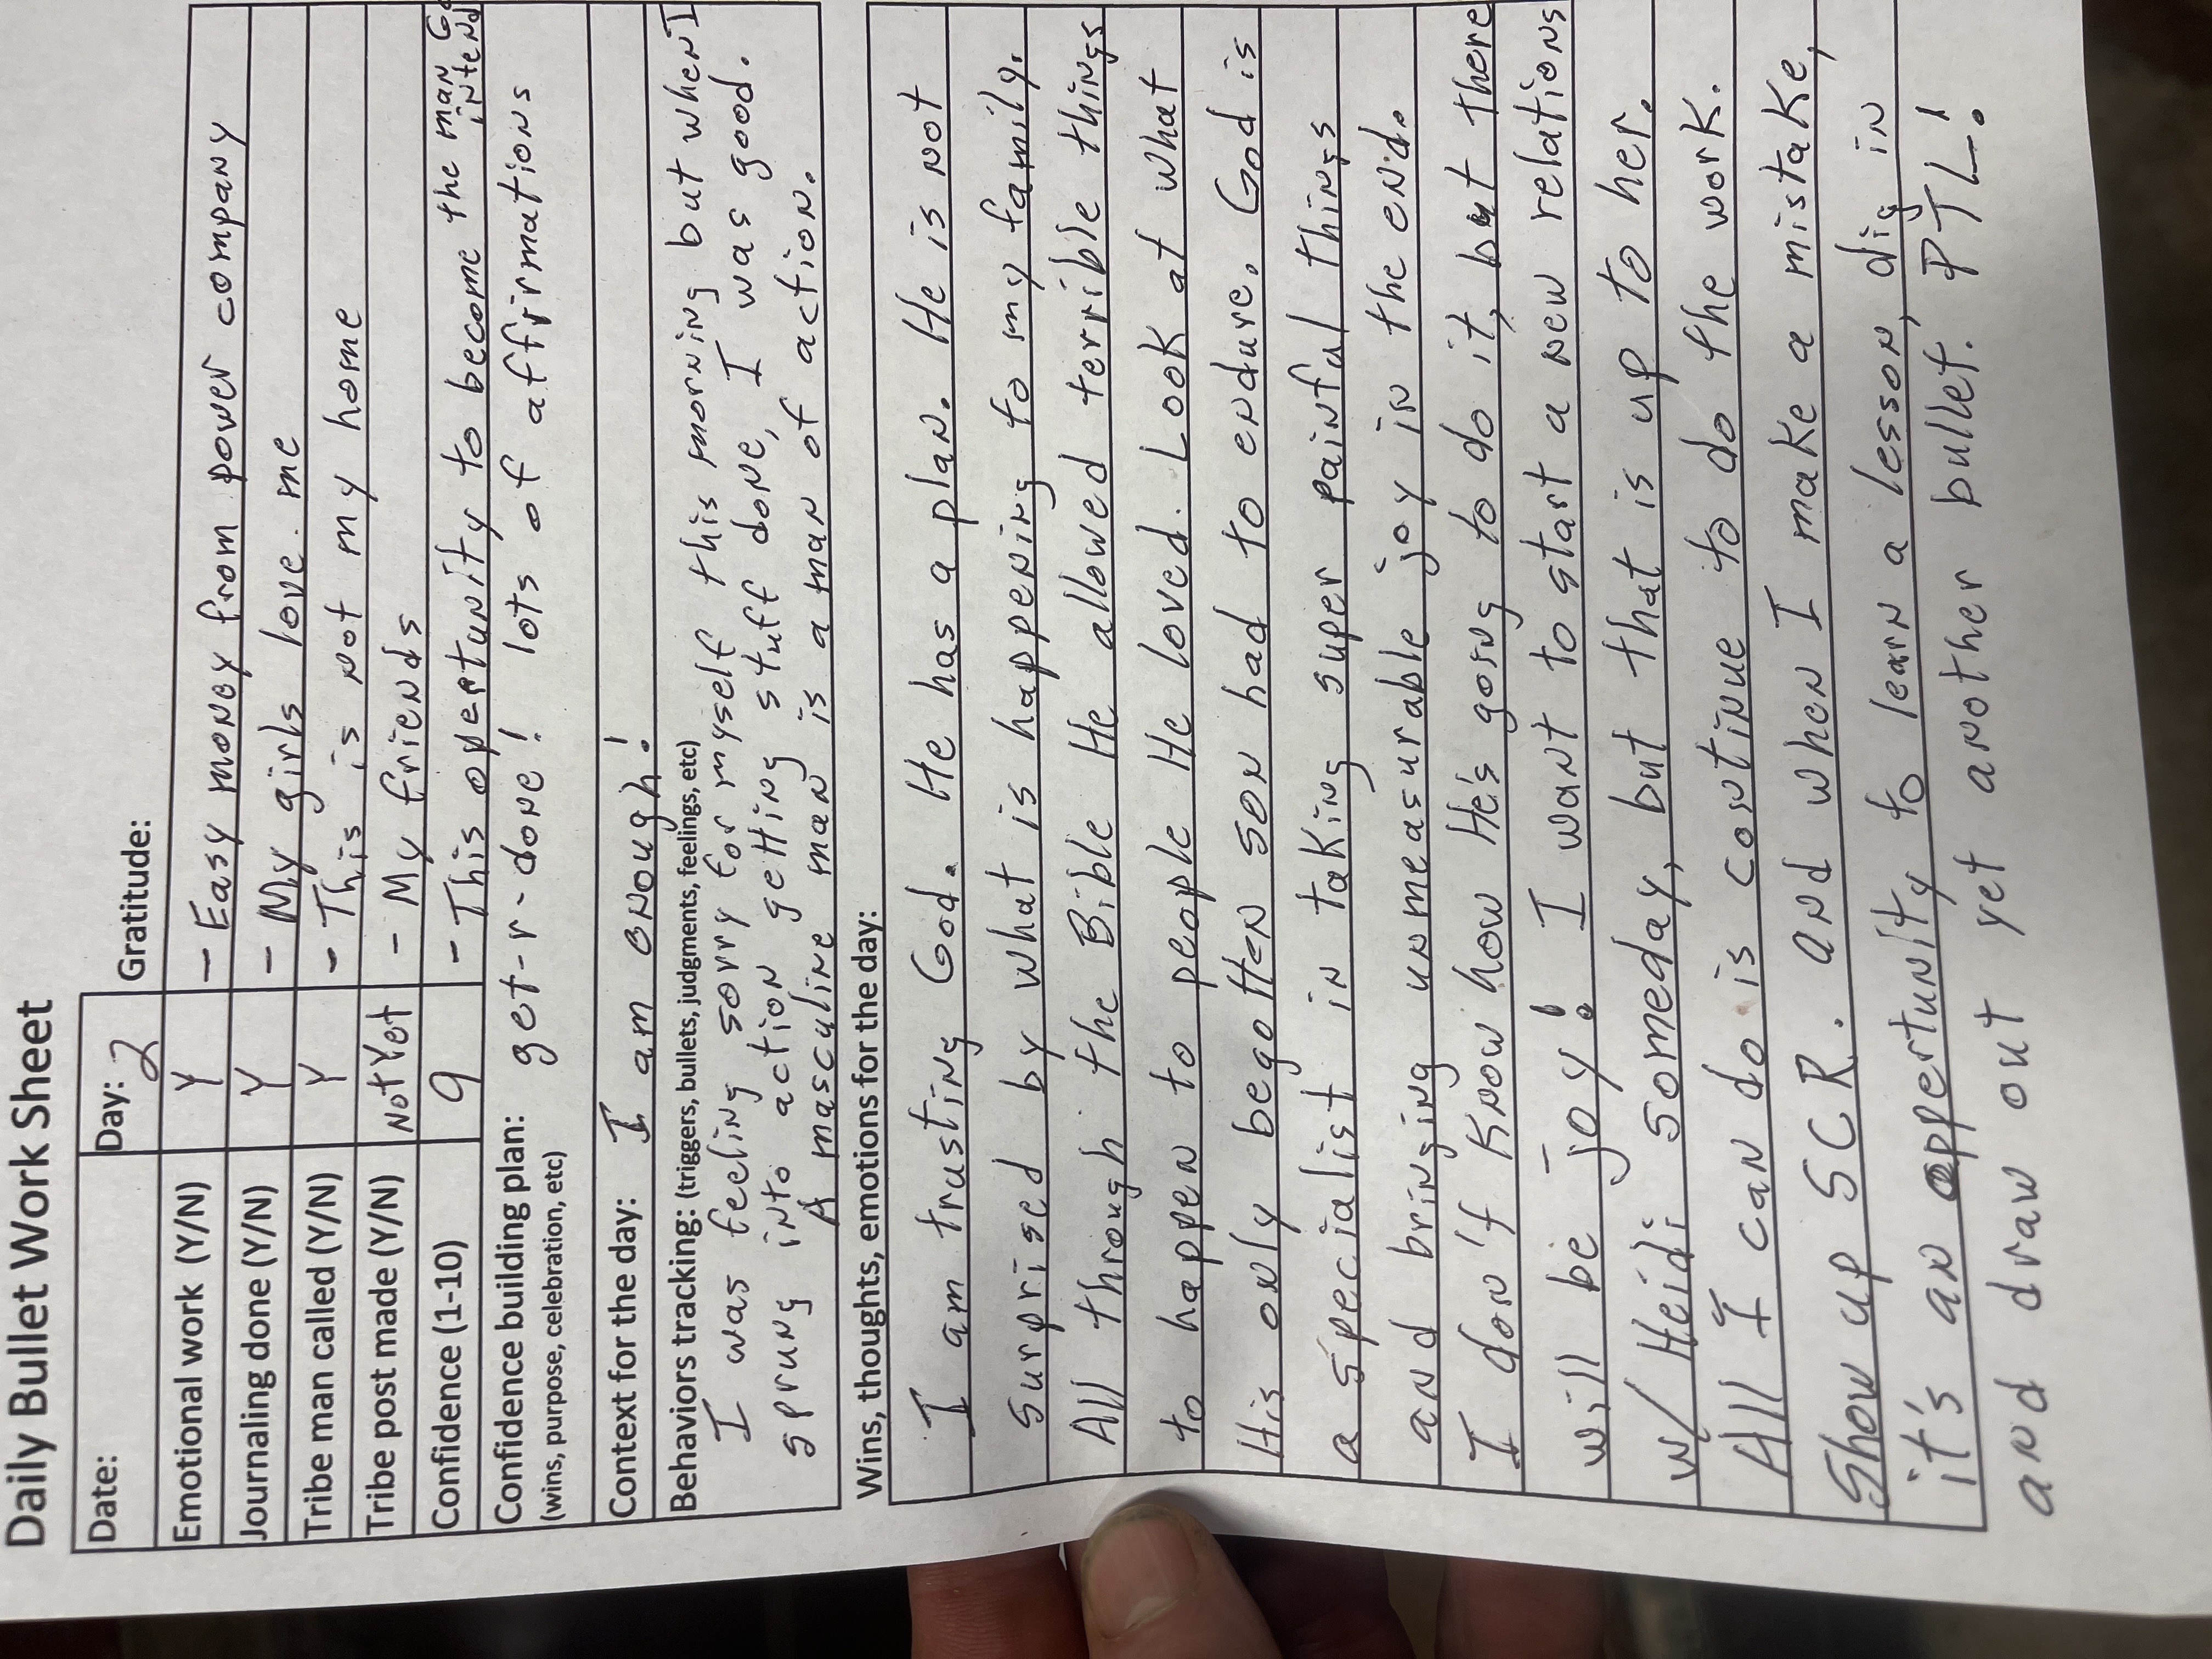 Daily Bullet Work Sheet
Date: Day: 2 Gratitude:
Emotional work (Y/N) Y - Easy money from power company
Journaling done (Y/N) Y - My girls love me
Tribe man called (Y/N) Y - This is not my home
Tribe post made (Y/N) Not Yet - My friends
Confidence (1-10) 9 - This opertunity to become the man
intend
Confidence building plan: get-r-done! lots of affirmations
(wins, purpose, celebration, etc)
Context for the day: I am enough!
Behaviors tracking: (triggers, bullets, judgments, feelings, etc)
I was feeling sorry for myself this morning but when I
sprung into action getting stuff done, I was good.
A masculine man is a man of action.
Wins, thoughts, emotions for the day:
I am trusting God. He has a plan. He is not
surprised by what is happening to my family.
All through the Bible He allowed terrible things
to happen to people He loved. Look at what
His only begotten son had to endure. God is
a specialist in taking super painful things
and bringing unmeasurable joy in the end.
I don't know how He's going to do it, but there
will be joy! I want to start a new relations
w/ Heidi someday, but that is up to her.
All I can do is continue to do the work.
Show up SCR. and when I make a mistake,
it's an oppertunity to learn a lesson, dig in
and draw out yet another bullet. PTL!